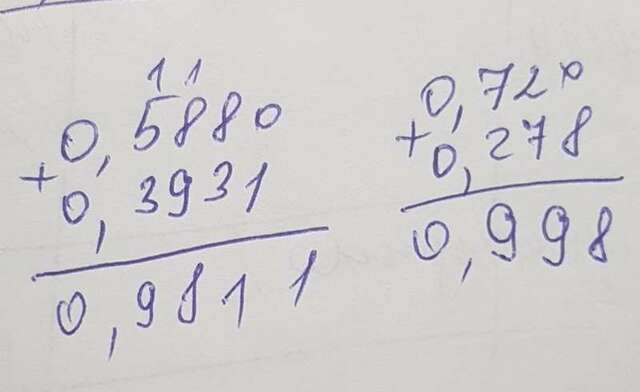 1 1
0,5880
+
0,3931
0,9811
0,720
+
0,278
0,998